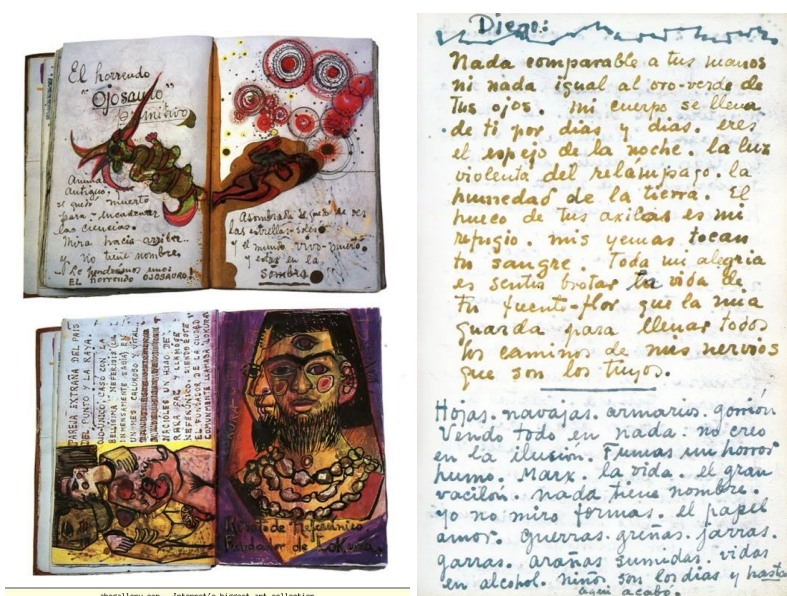 El horrendo
"OJOSAURO"
primitivo
Animal
antiguo, que
se quedó muerto
para encadenar
las ciencias.
Mira hacia arriba...
y no tiene nombre.
Le pondremos uno:
EL HORRENDO OJOSAURO!
Asombrada se quedó de ver
las estrellas-soles
y el mundo vivo-muerto
y estar en la
sombra
PAREJA EXTRAÑA DEL PAIS
DEL PUNTO Y LA RAYA.
OJO-UNICO, CASO CON LA
BELLISIMA "NEFERISIS" (LA
INMENSAMENTE SABIA) EN
UN MES CALUROSO Y VITAL.
NACIOLES UN HIJO DE
RARA FAZ Y LLAMOSE
NEFERÚNICO, SIENDO ESTE
EL FUNDADOR DE LA CIUDAD
COMUNMENTE LLAMADA LOKURA
Retrato de Neferúnico
Fundador de Lokura.
Diego:
Nada comparable a tus manos
ni nada igual al oro-verde de
tus ojos. mi cuerpo se llena
de ti por dias y dias. eres
el espejo de la noche. la luz
violenta del relámpago. la
humedad de la tierra. El
hueco de tus axilas es mi
refugio. mis yemas tocan
tu sangre. Toda mi alegria
es sentir brotar la vida de
tu fuente-flor que la mia
guarda para llenar todos
los caminos de mis nervios
que son los tuyos.
Hojas. navajas. armario. gorrión
Vendo todo en nada. no creo
en la ilusión. Fumas un horror
humo. Marx. la vida. el gran
vacilón. nada tiene nombre.
yo no miro formas. el papel
amor. guerras. greñas. jarras.
garras. arañas sumidas. vidas
en alcohol. niños son los dias y hasta
aqui acabó.